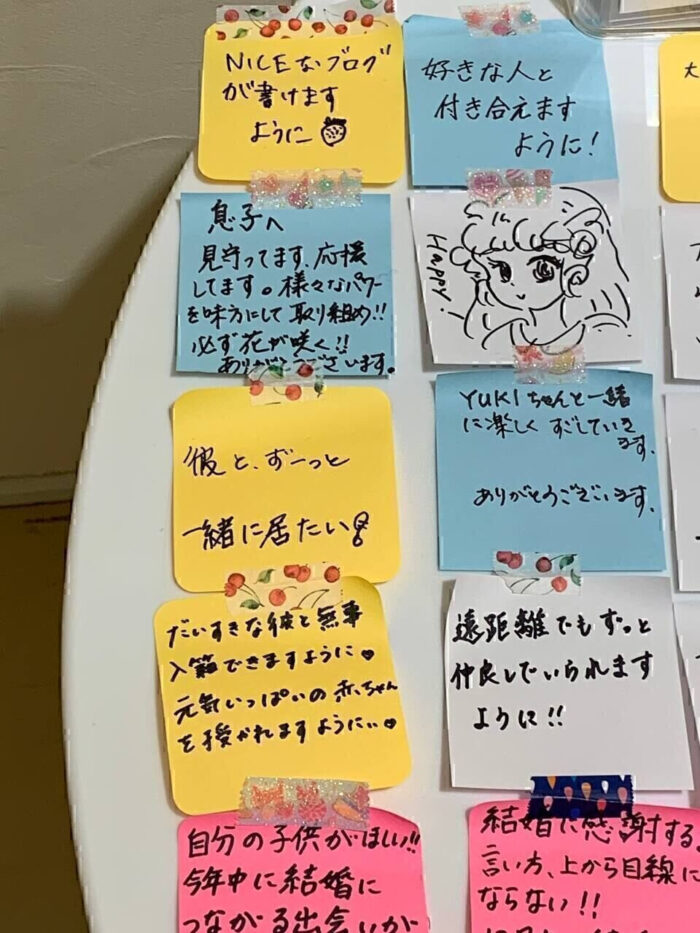 NICEなブログ
が書けます
ように
好きな人と
付き合えます
ように!
大
息子へ
見守ってます、応援
してます。様々なパワー
を味方にして取り組め!!
必ず花が咲く!!
ありがとうございます。
HAPPY!
彼と、ずーっと
一緒に居たい
YUKIちゃんと一緒
に楽しくすごしていき
ます。
ありがとうございます。
だいすきな彼と無事
入籍できますように♥
元気いっぱいの赤ちゃん
を授かれますように♥
遠距離でもずっと
仲良しでいられます
ように!!
自分の子供がほしい!!
今年中に結婚に
つながる出会いが
結婚に感謝する。
言い方、上から目線に
ならない!!